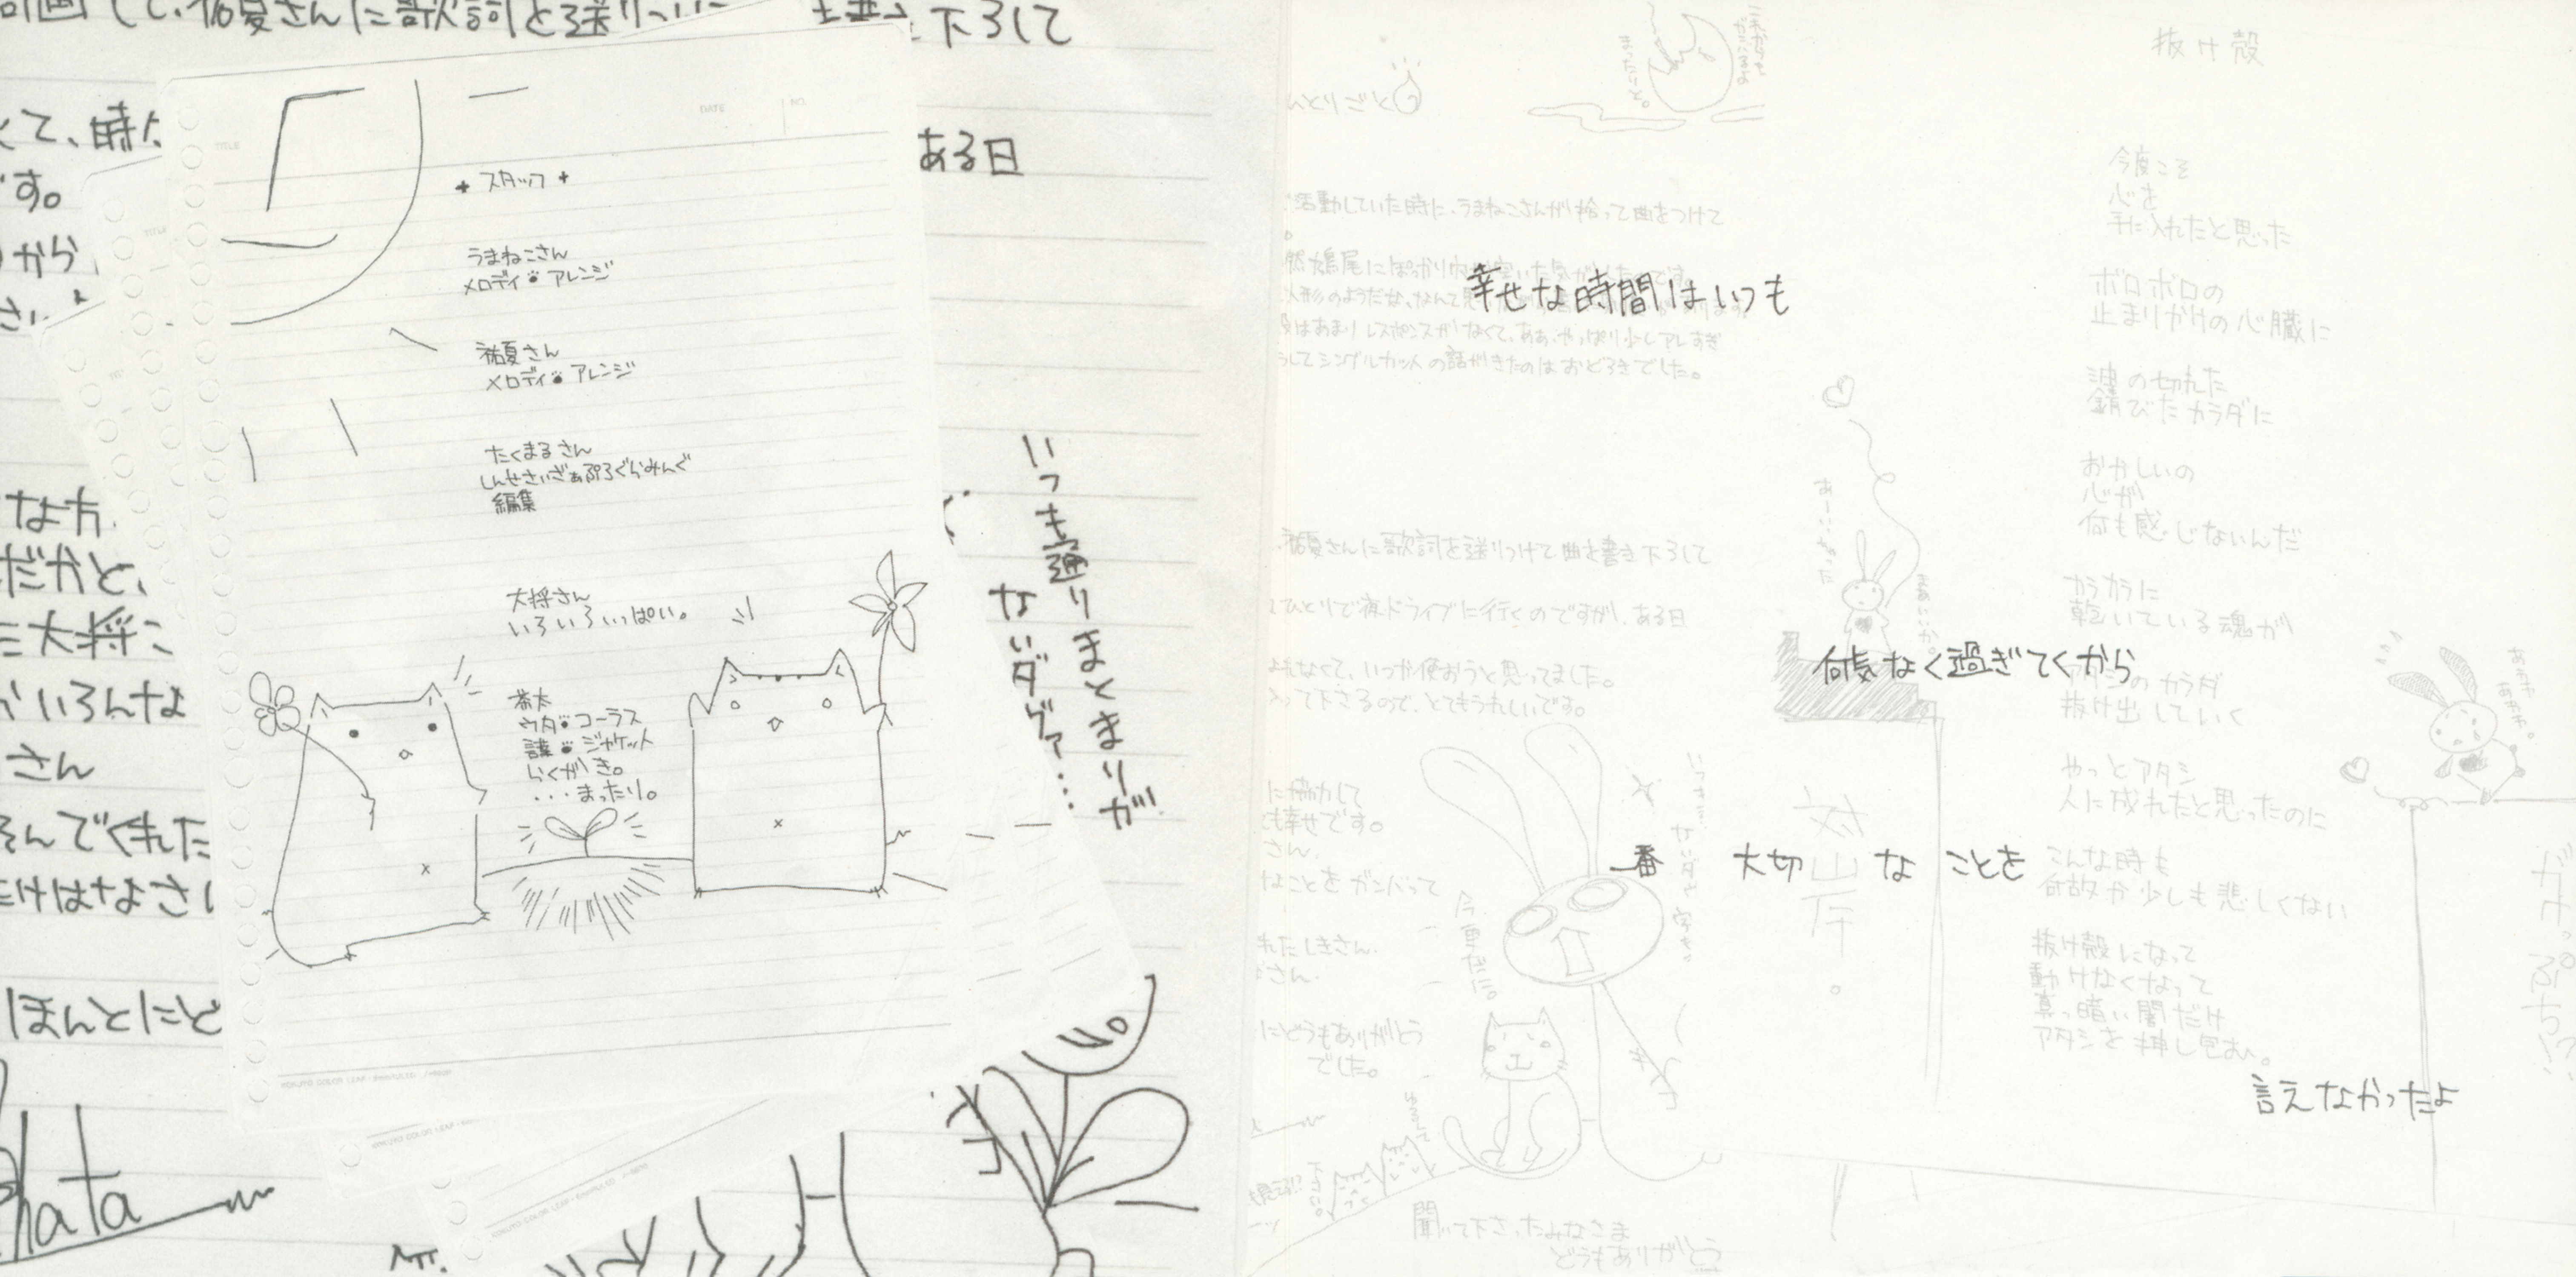 画して、祐夏さんに歌詞を送りつけ
下ろして
て、時
ある日
す。
から
さい
TITLE
DATE
NO.
+ スタッフ +
うまねこさん
メロディ アレンジ
祐夏さん
メロディ アレンジ
たくまるさん
しんせさいざぁぷろぐらみんぐ
編集
大将さん
いろいろいっぱい。
茶太
ウタ コーラス
ジャケット
らくがき。
・・・まったり。
な方
だかと、
大将こ
いろんな
さん
そんでくれた
だけはなさい
ほんとにど
hata
いつも通りまとまりが
ないダヴァ・・・
ひとりごと
活動していた時に、うまねこさんが拾って曲をつけて
。
幸せな時間はいつも
はあまりレスポンスがなくて、ああ、やっぱり少しアレすぎ
してシングルカットの話がきたのはおどろきでした。
祐夏さんに歌詞を送りつけて曲を書き下ろして
ひとりで夜ドライブに行くのですが、ある日
なくて、いつか使おうと思ってました。
って下さるので、とてもうれしいです。
に協力して
も幸せです。
さん、
なことをガンバって
れたしきさん、
さん、
にどうもありがとう
でした。
聞いて下さったみなさま
どうもありがとう
今更だに。
あーいっちゃった
まあいいか。
何気なく過ぎてくから
一番 大切 な ことを
言えなかったよ
抜け殻
今度こそ
心を
手に入れたと思った
ボロボロの
止まりかけの心臓に
油の切れた
錆びたカラダに
おかしいの
心が
何も感じないんだ
カラカラに
乾いている魂が
アタシのカラダ
抜け出していく
やっとアタシ
人に成れたと思ったのに
こんな時も
何故か少しも悲しくない
抜け殻になって
動けなくなって
真っ暗い闇だけ
アタシを押し包む。
あわわ
あわわ。
ガケっぷち!?